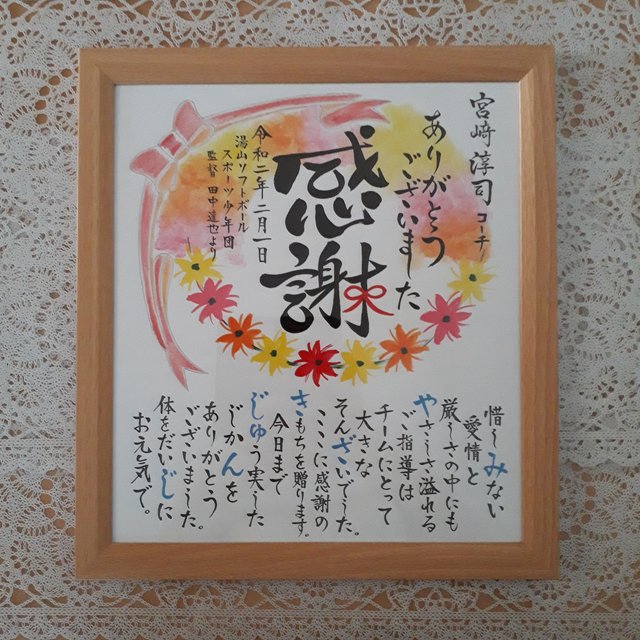 宮﨑淳司コーチ!
ありがとう
ございました
感謝
令和二年二月一日
湯山ソフトボール
スポーツ少年団
監督 田中達也より
惜しみない
愛情と
厳しさの中にも
やさしさ溢れる
ご指導は
チームにとって
大きな
そんざいでした。
ここに感謝の
きもちを贈ります。
今日まで
じゅう実した
じかんを
ありがとう
ございました。
体をだいじに
お元気で。